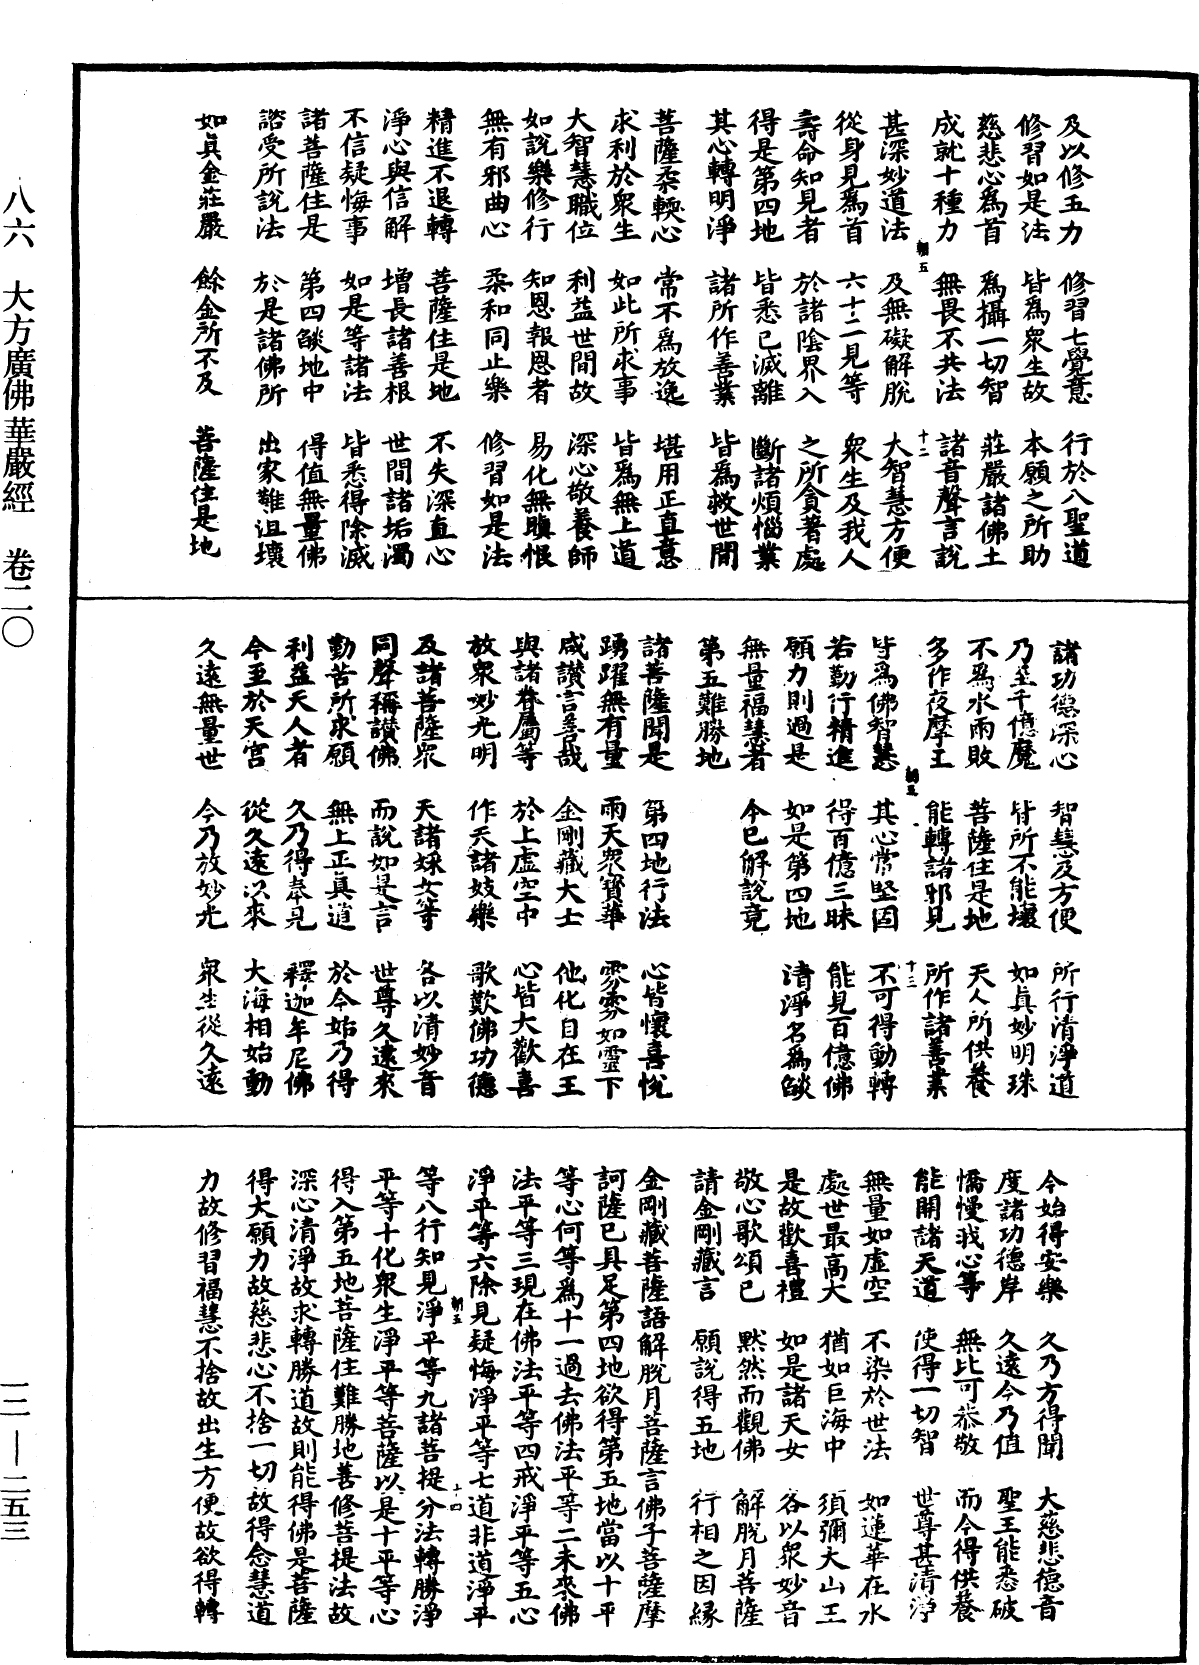 及以修五力　修習七覺意　行於八聖道
修習如是法　皆爲衆生故　本願之所助
慈悲心爲首　爲攝一切智　莊嚴諸佛土
成就十種力　無畏不共法　諸音聲言說
朝五　十二
甚深妙道法　及無礙解脫　大智慧方便
從身見爲首　六十二見等　衆生及我人
壽命知見者　於諸陰界入　之所貪著處
得是第四地　皆悉已滅離　斷諸煩惱業
其心轉明淨　諸所作善業　皆爲救世間
菩薩柔輭心　常不爲放逸　堪用正直意
求利於衆生　如此所求事　皆爲無上道
大智慧職位　利益世間故　深心敬養師
如說樂修行　知恩報恩者　易化無瞋恨
無有邪曲心　柔和同止樂　修習如是法
精進不退轉　菩薩住是地　不失深直心
淨心與信解　增長諸善根　世間諸垢濁
不信疑悔事　如是等諸法　皆悉得除滅
諸菩薩住是　第四燄地中　得值無量佛
諮受所說法　於是諸佛所　出家難沮壞
如真金莊嚴　餘金所不及　菩薩住是地
諸功德深心　智慧及方便　所行清淨道
乃至千億魔　皆所不能壞　如真妙明珠
不爲水雨敗　菩薩住是地　天人所供養
多作夜摩王　能轉諸邪見　所作諸善業
朝五　十三
皆爲佛智慧　其心常堅固　不可得動轉
若勤行精進　得百億三昧　能見百億佛
願力則過是　如是第四地　清淨名爲燄
無量福慧者　今已解說竟
第五難勝地
諸菩薩聞是　第四地行法　心皆懷喜悅
踴躍無有量　雨天衆寶華　雰雰如雪下
咸讚言善哉　金剛藏大士　他化自在王
與諸眷屬等　於上虛空中　心皆大歡喜
放衆妙光明　作天諸妓樂　歌歎佛功德
及諸菩薩衆　天諸婇女等　各以清妙音
同聲稱讚佛　而說如是言　世尊久遠來
勤苦所求願　無上正真道　於今始乃得
利益天人者　久乃得奉見　釋迦牟尼佛
今至於天宮　從久遠以來　大海相始動
久遠無量世　今乃放妙光　衆生從久遠
今始得安樂　久乃方得聞　大慈悲德音
度諸功德岸　久遠今乃值　聖王能悉破
憍慢我心等　無比可恭敬　而今得供養
能開諸天道　使得一切智　世尊甚清淨
無量如虛空　不染於世法　如蓮華在水
處世最高大　猶如巨海中　須彌大山王
是故歡喜禮　如是諸天女　各以衆妙音
敬心歌頌已　默然而觀佛　解脫月菩薩
請金剛藏言　願說得五地　行相之因緣
金剛藏菩薩語解脫月菩薩言佛子菩薩摩
訶薩已具足第四地欲得第五地當以十平
等心何等爲十一過去佛法平等二未來佛
法平等三現在佛法平等四戒淨平等五心
淨平等六除見疑悔淨平等七道非道淨平
朝五　十四
等八行知見淨平等九諸菩提分法轉勝淨
平等十化衆生淨平等菩薩以是十平等心
得入第五地菩薩住難勝地善修菩提法故
深心清淨故求轉勝道故則能得佛是菩薩
得大願力故慈悲心不捨一切故得念慧道
力故修習福慧不捨故出生方便故欲得轉
八六　大方廣佛華嚴經　卷二〇
一二—二五三